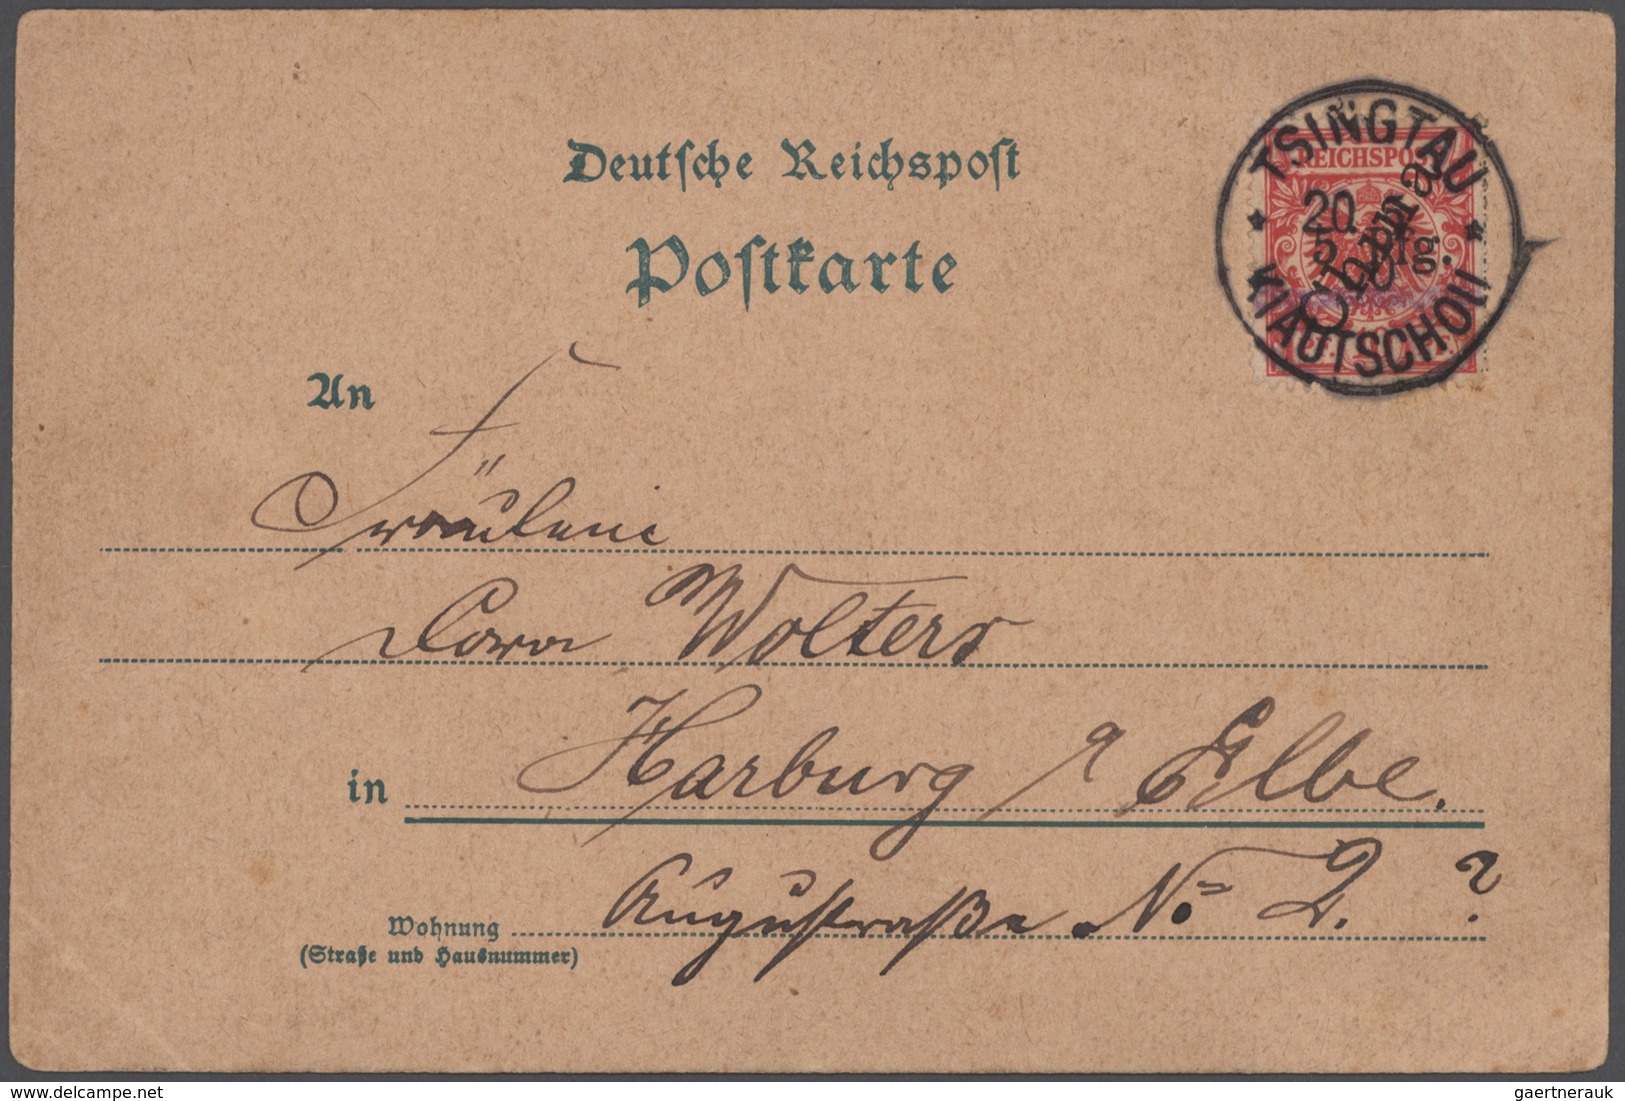 Deutsche Reichspost
Postkarte
TSINGTAU
REICHSPOST
20
5 Pfg.
China
KIAUTSCHOU
An
Fräulein
Dora Wolters
in Harburg a Elbe.
Augustraße No 2. ?
Wohnung
(Straße und Hausnummer)
www.delcampe.net
gaertnerauk